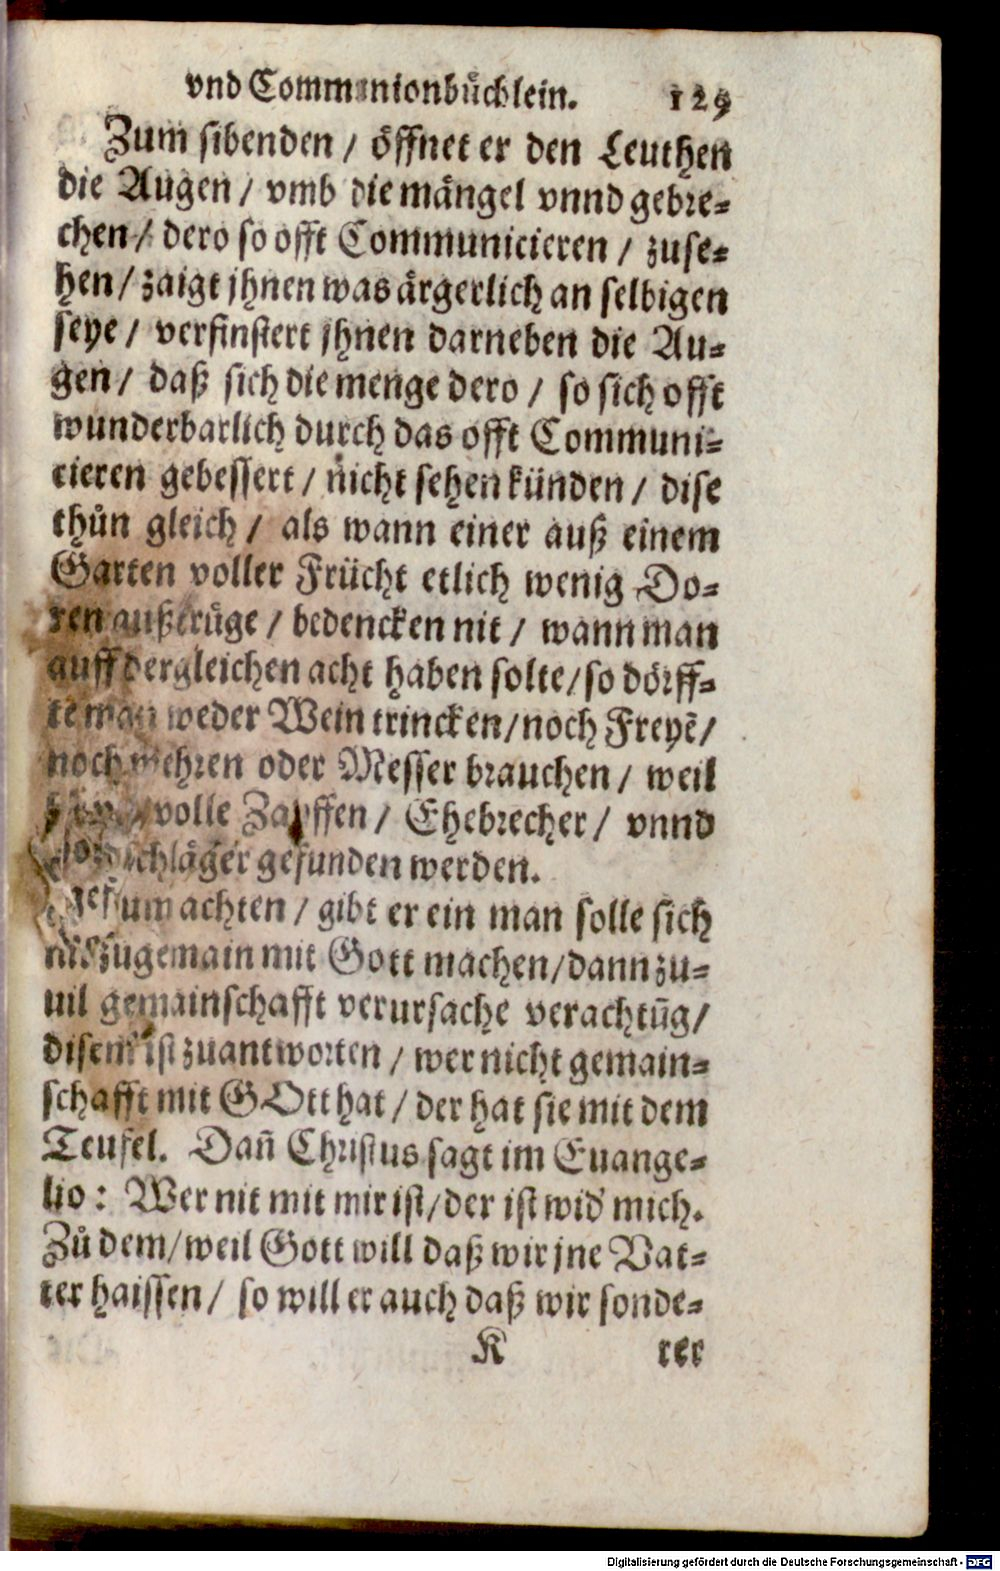 vnd Communionbůchlein. 129
Zum sibenden / öffnet er den Leuthen
die Augen / vmb die mängel vnnd gebre-
chen / dero so offt Communicieren / zuse-
hen / zaigt jhnen was ärgerlich an selbigen
seye / verfinstert jhnen darneben die Au-
gen / daß sich die menge dero / so sich offt
wunderbarlich durch das offt Communi-
cieren gebessert / nicht sehen künden / dise
thůn gleich / als wann einer auß einem
Garten voller Frücht etlich wenig Do-
ren außtrüge / bedencken nit / wann man
auff dergleichen acht haben solte / so dörff-
te man weder Wein trincken / noch Freyē /
noch wehren oder Messer brauchen / weil
volle Zapffen / Ehebrecher / vnnd
gefunden werden.
Zum achten / gibt er ein man solle sich
zugemain mit Gott machen / dann zu-
uil gemainschafft verursache verachtūg /
disem ist zuantworten / wer nicht gemain-
schafft mit GOtt hat / der hat sie mit dem
Teufel. Dañ Christus sagt im Euange-
lio : Wer nit mit mir ist / der ist wid' mich.
Zů dem / weil Gott will daß wir jne Vat-
ter haissen / so will er auch daß wir sonde-
K rer
Digitalisierung gefördert durch die Deutsche Forschungsgemeinschaft - DFG